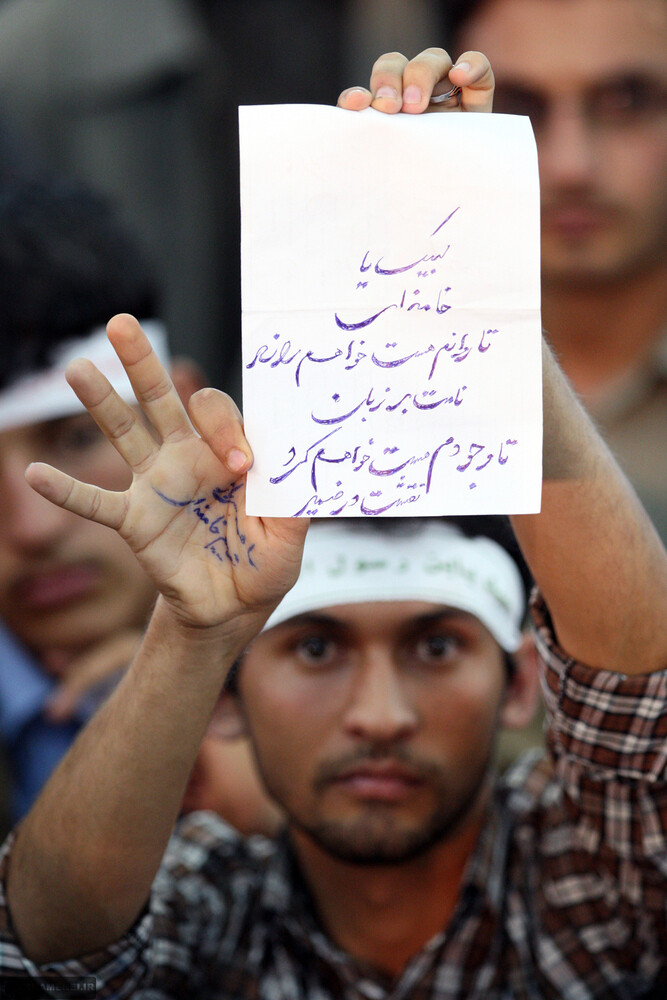 لبیک یا
خامنه ای
تا توانم هست خواهم راند
نامت بر زبان
تا وجودم هست خواهم کرد
نقشت در ضمیر
خامنه ای
رسول